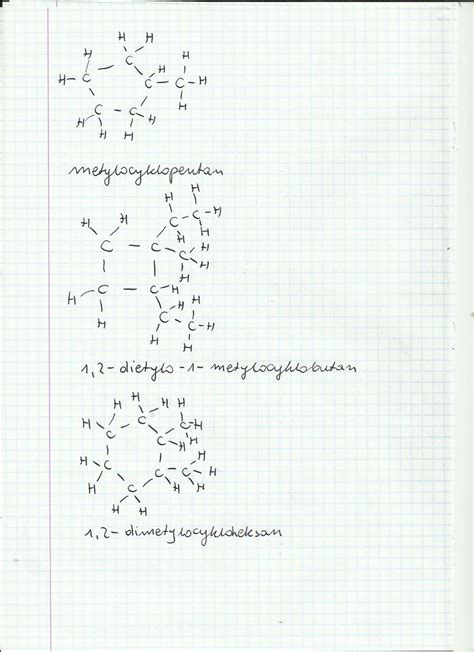 metylocyklopentan
1,2-dietylo-1-metylocyklobutan
1,2-dimetylocykloheksan